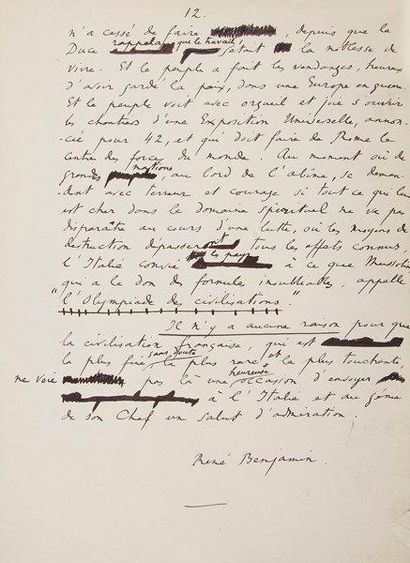 12.
n'a cessé de faire, depuis que le
Duce rappela que le travail était la noblesse de
vivre. Et le peuple a fait les vendanges, heureux
d'avoir gardé la paix, dans une Europe en guerre.
Et le peuple voit avec orgueil et joie s'ouvrir
les chantiers d'une Exposition Universelle, annon-
cée pour 42, et qui doit faire de Rome le
centre des forces du monde. Au moment où de
grandes nations, au bord de l'abîme, se deman-
dent avec terreur et courage si tout ce qui leur
est cher dans le domaine spirituel ne va pas
disparaître au cours d'une lutte, où les moyens de
destruction dépasseront tous les effets connus,
l'Italie convie les pays à ce que Mussolini
qui a le don des formules inoubliables, appelle
"l'Olympiade des civilisations."
Il n'y a aucune raison pour que
la civilisation française, qui est
la plus fine, sans doute la plus rare et la plus touchante,
ne voie pas là une heureuse occasion d'envoyer
à l'Italie et au génie
de son Chef un salut d'admiration.
René Benjamin.